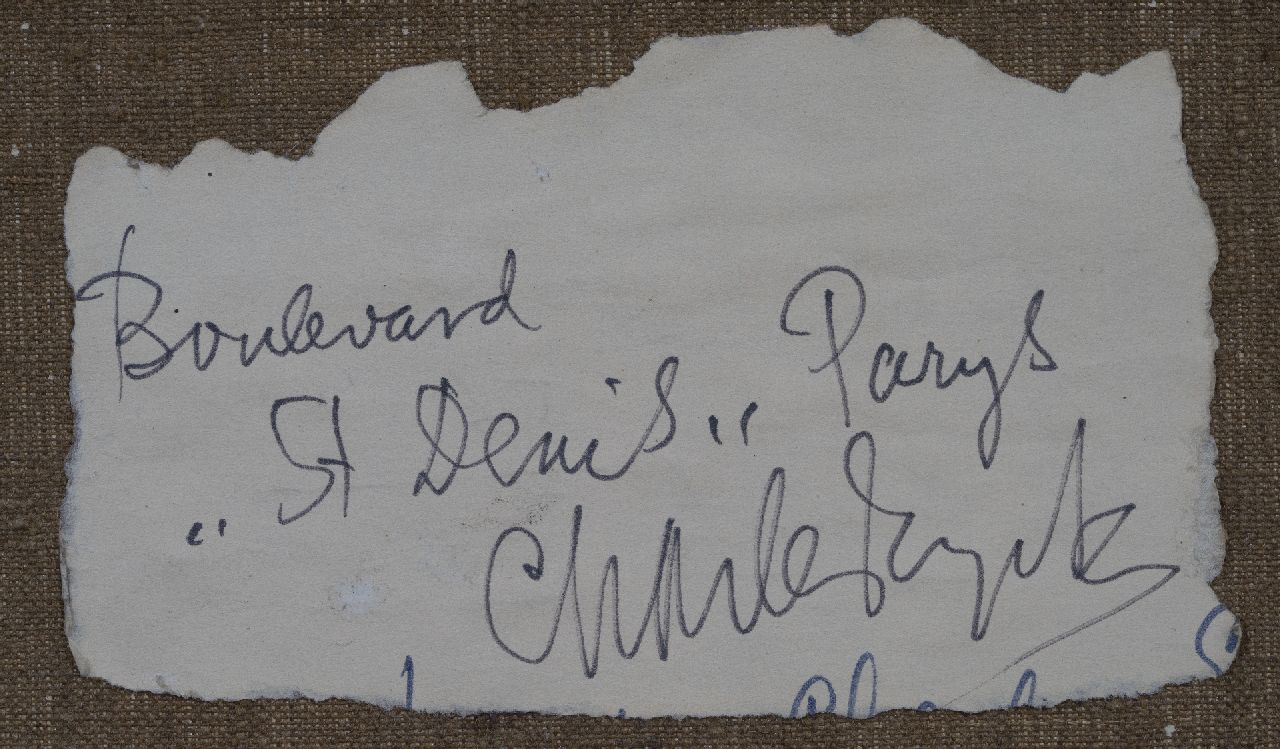 Boulevard
„ St Denis „ Parys
Charles Eyck